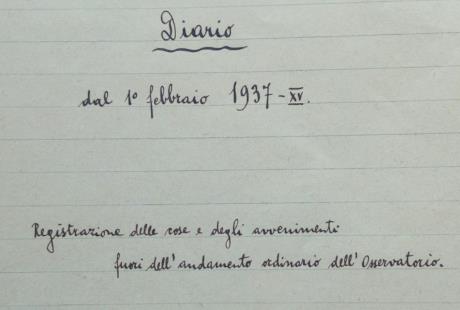 Diario
dal 1º febbraio 1937 - XV.
Registrazione delle cose e degli avvenimenti
fuori dell'andamento ordinario dell'Osservatorio.